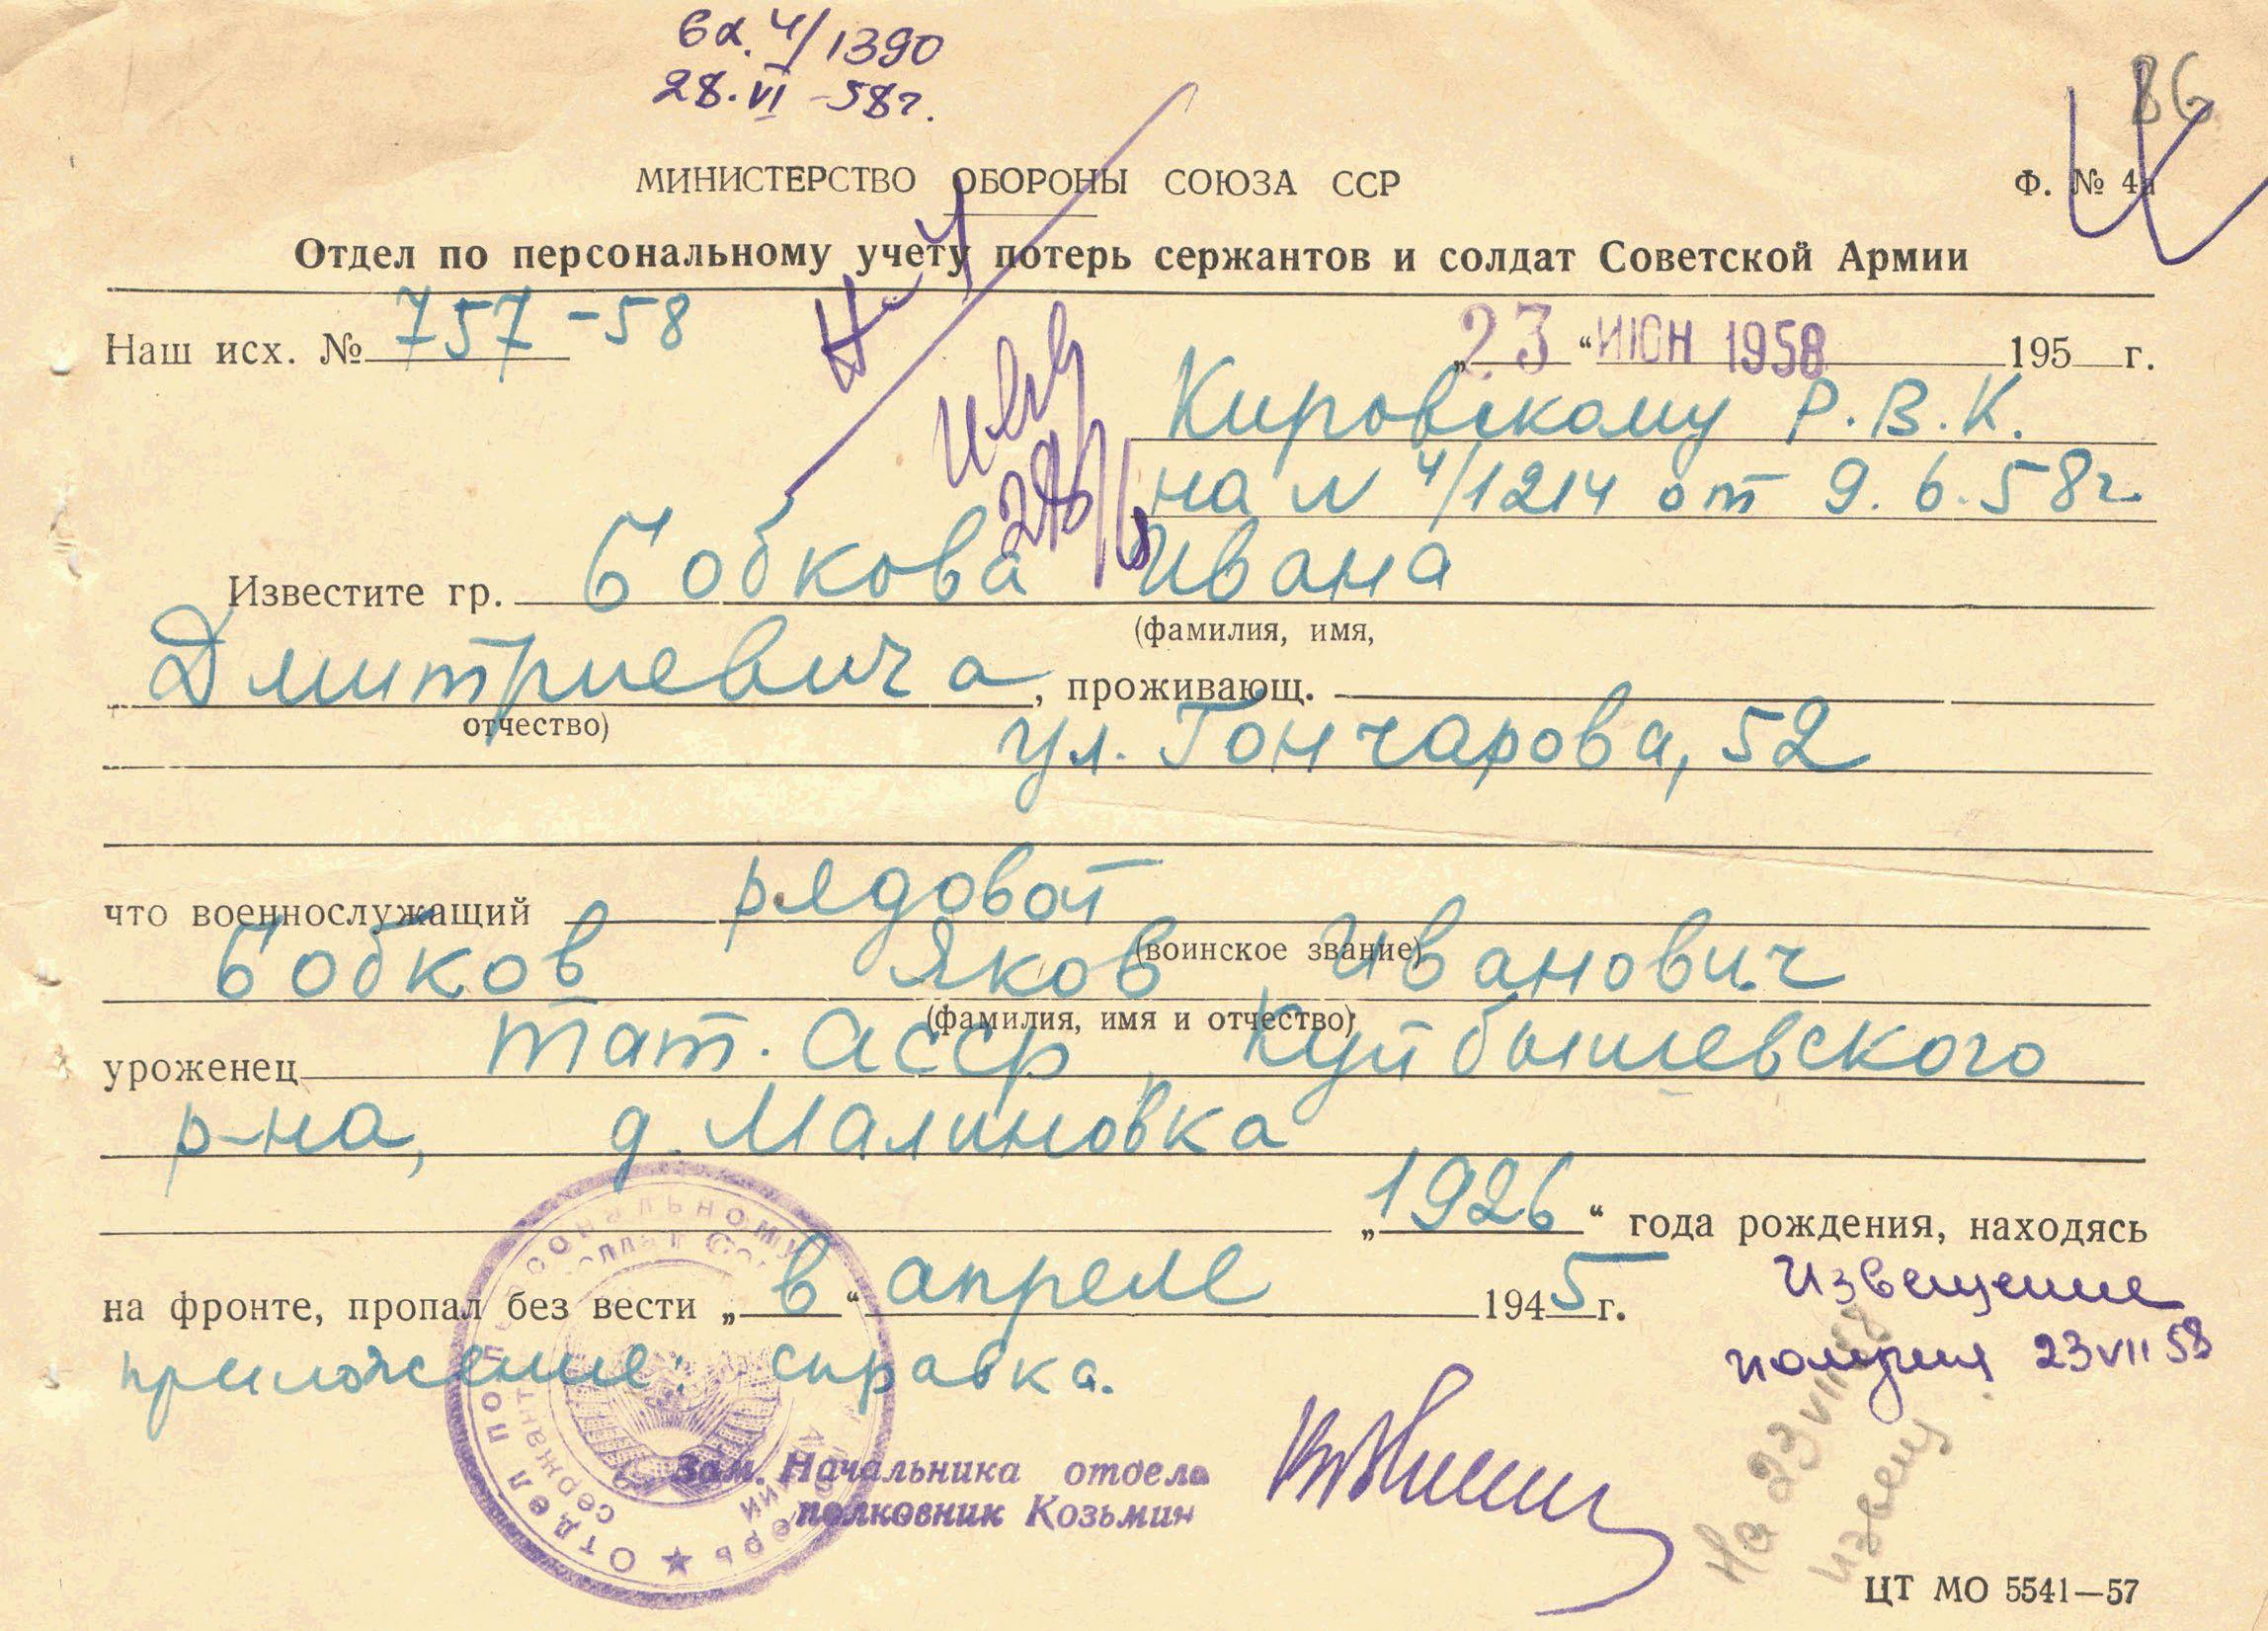 вх. ч/1390
28.VI-58г.
86
МИНИСТЕРСТВО ОБОРОНЫ СОЮЗА ССР
Ф. № 4а
Отдел по персональному учету потерь сержантов и солдат Советской Армии
Наш исх. № 757-58
„23“ ИЮН 1958 195 г.
Кировскому Р.В.К.
на N ч/1214 от 9.6.58г.
Известите гр. Бобкова Ивана
(фамилия, имя,
Дмитриевича, проживающ.
отчество)
ул. Гончарова, 52
что военнослужащий рядовой
(воинское звание)
Бобков Яков Иванович
(фамилия, имя и отчество)
уроженец Тат. АССР, Куйбышевского
р-на, д. Малиновка
„1926“ года рождения, находясь
на фронте, пропал без вести „в“ апреле 1945 г.
Извещение
приложение: справка.
23 VII 58
Зам. Начальника отдела
полковник Козьмин
На 23 VII 58
извещ
Отдел по персональному
потерь
сержант
солдат
ЦТ МО 5541—57